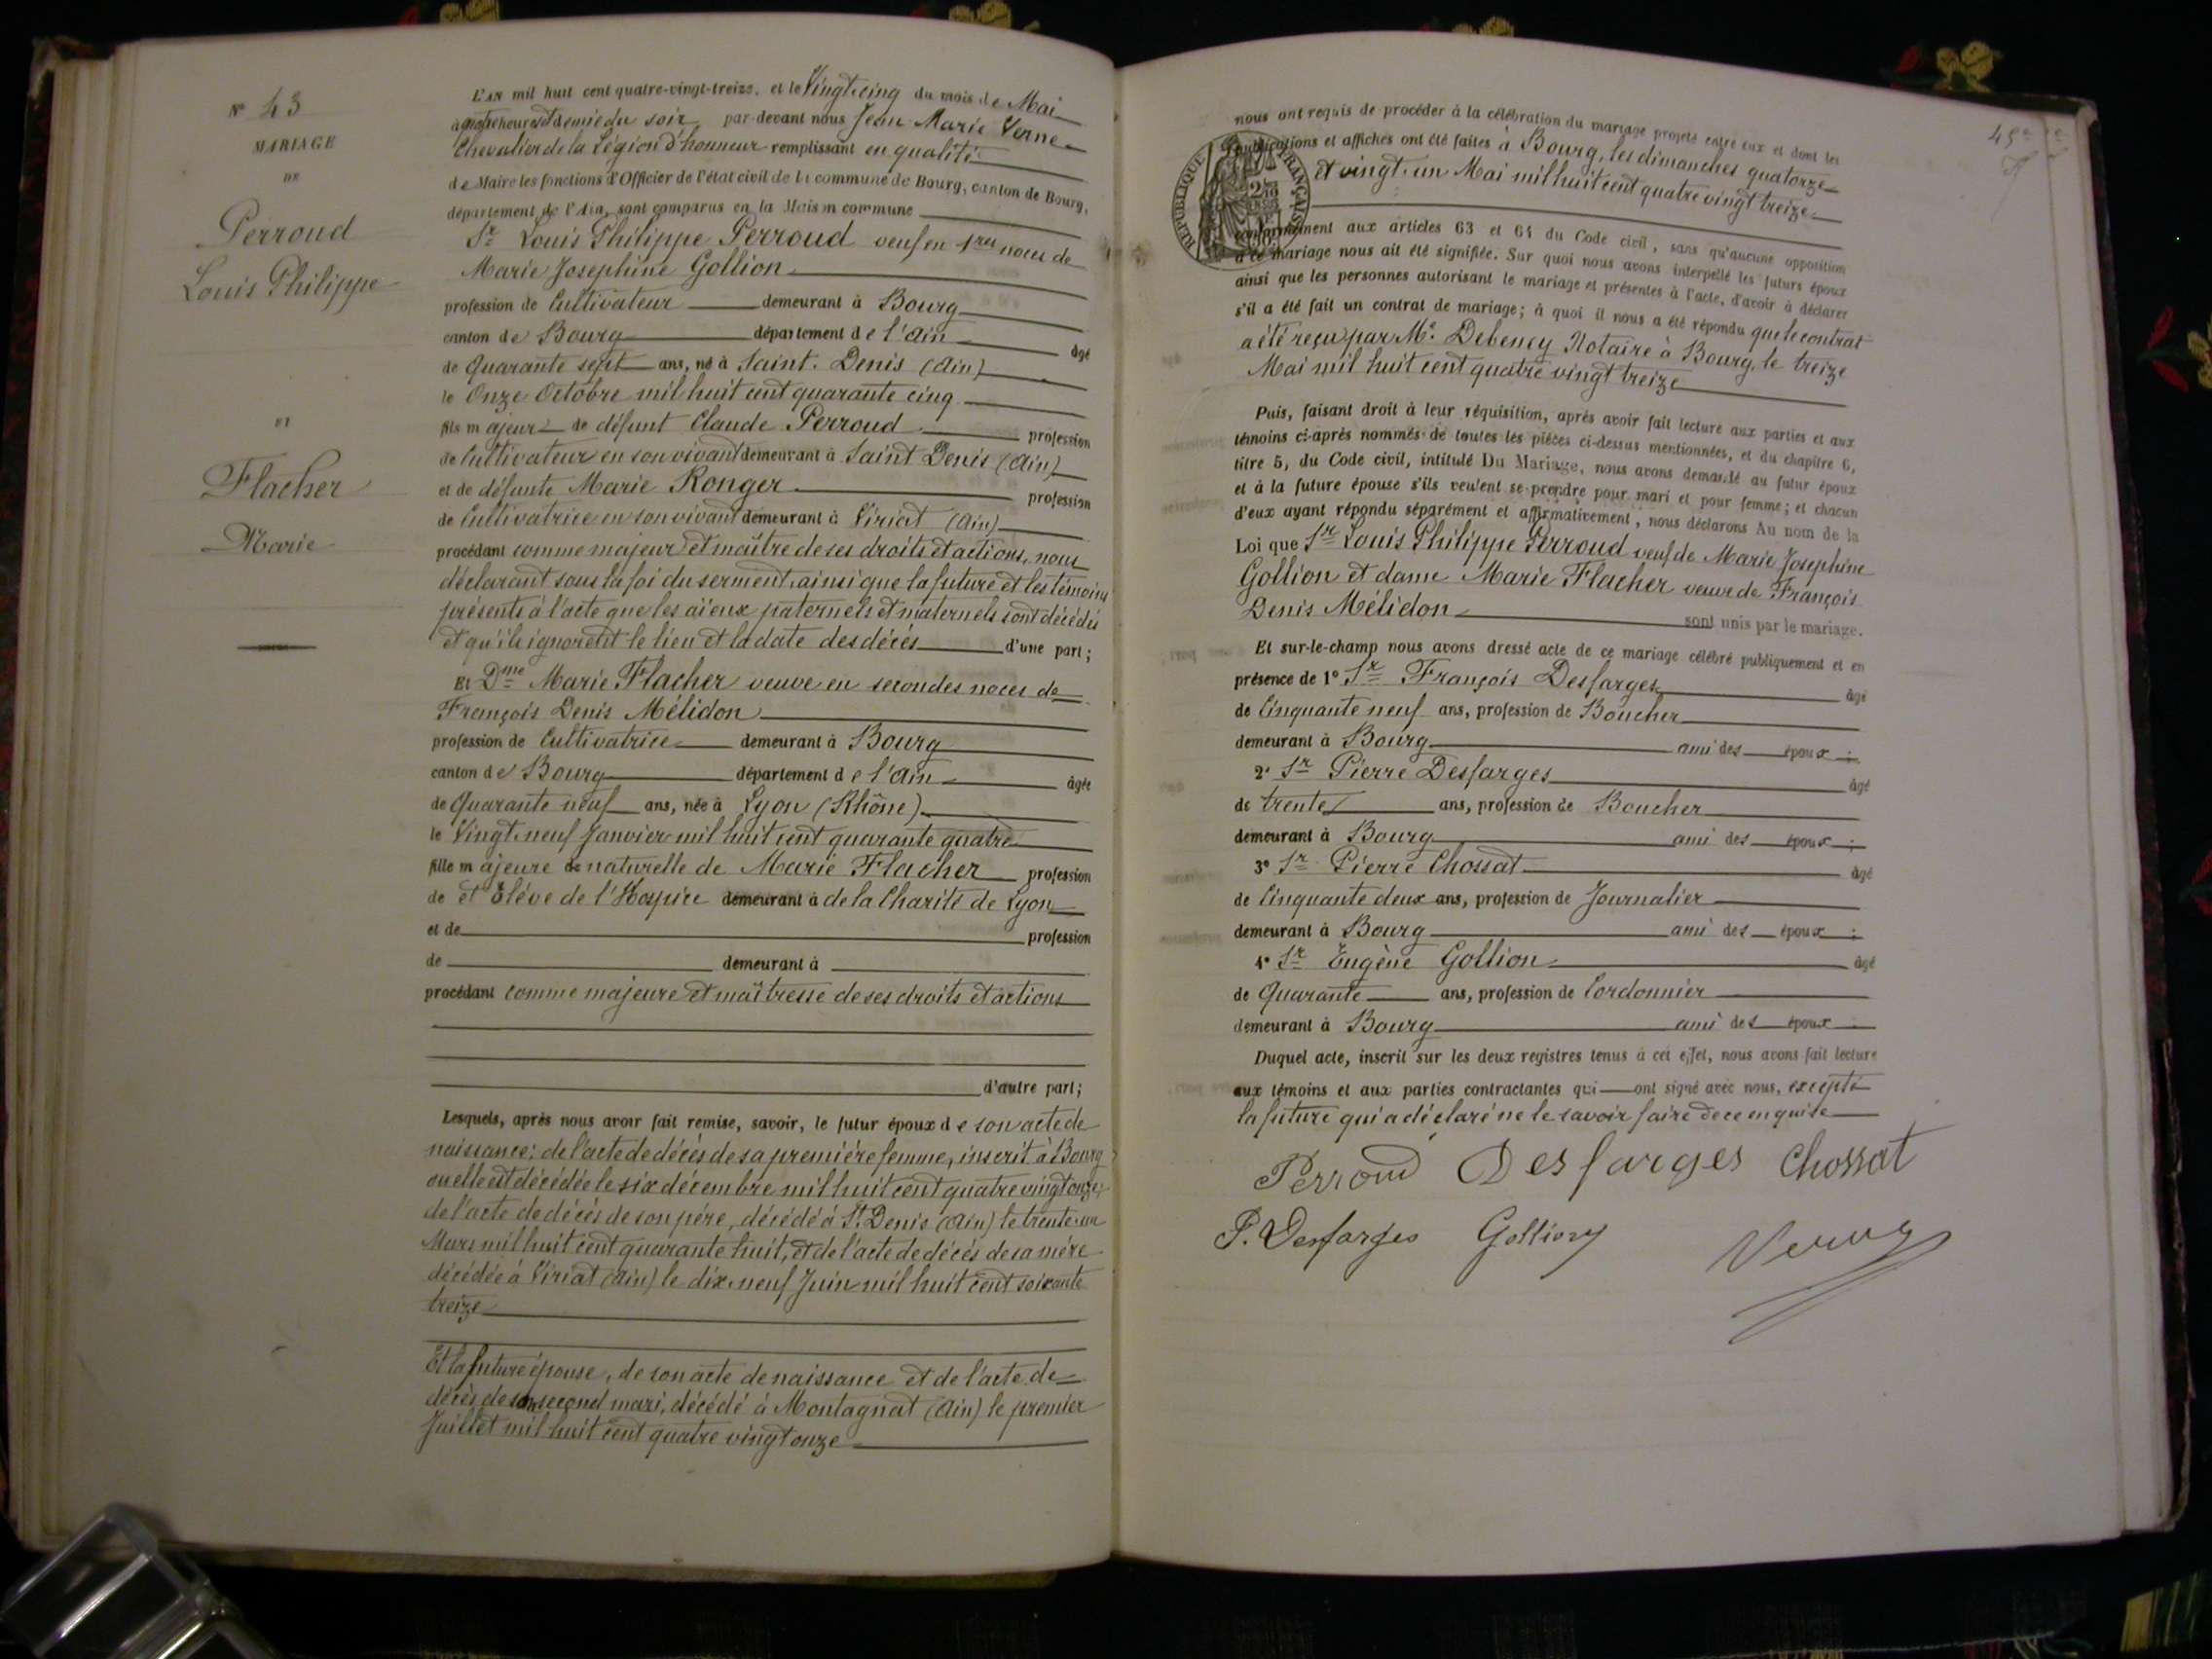 N° 43
MARIAGE
DE
Perroud
Louis Philippe
ET
Flacher
Marie
L'AN mil huit cent quatre-vingt-treize, et le Vingt cinq du mois de Mai
à quatre heures et demie du soir par-devant nous Jean Marie Verne
Chevalier de la Légion d'honneur remplissant en qualité
de Maire les fonctions d'Officier de l'état civil de la commune de Bourg, canton de Bourg,
département de l'Ain, sont comparus en la Maison commune
Sr Louis Philippe Perroud veuf en 1res noces de
Marie Josephine Gollion
profession de Cultivateur demeurant à Bourg
canton de Bourg département de l'Ain âgé
de Quarante sept ans, né à Saint-Denis (Ain)
le Onze Octobre mil huit cent quarante cinq
fils majeur de défunt Claude Perroud profession
de Cultivateur en son vivant demeurant à Saint Denis (Ain)
et de défunte Marie Ronger profession
de Cultivatrice en son vivant demeurant à Viriat (Ain)
procédant comme majeur et maître de ses droits et actions, nous
déclarant sous la foi du serment, ainsi que la future et les témoins
présents à l'acte que les aïeux paternels et maternels sont décédés
et qu'ils ignorent le lieu et la date des décès d'une part;
Et Dme Marie Flacher veuve en secondes noces de
François Denis Mélidon
profession de Cultivatrice demeurant à Bourg
canton de Bourg département de l'Ain âgée
de Quarante neuf ans, née à Lyon (Rhône)
le Vingt-neuf Janvier mil huit cent quarante quatre
fille majeure de naturelle de Marie Flacher profession
de et Elève de l'Hospice demeurant à de la Charité de Lyon
et de profession
de demeurant à
procédant comme majeure et maîtresse de ses droits et actions
d'autre part;
Lesquels, après nous avoir fait remise, savoir, le futur époux de son acte de
naissance; de l'acte de décès de sa première femme, inscrit à Bourg
où elle est décédée le six décembre mil huit cent quatre vingt onze;
de l'acte de décès de son père, décédé à St. Denis (Ain) le trente-un
Mars mil huit cent quarante huit, et de l'acte de décès de sa mère
décédée à Viriat (Ain) le dix-neuf Juin mil huit cent soixante
treize
Et la future épouse, de son acte de naissance et de l'acte de
décès de son second mari, décédé à Montagnat (Ain) le premier
Juillet mil huit cent quatre vingt onze
45e
nous ont requis de procéder à la célébration du mariage projeté entre eux et dont les
publications et affiches ont été faites à Bourg, les dimanches quatorze
et vingt-un Mai mil huit cent quatre vingt treize
RÉPUBLIQUE FRANÇAISE
conformément aux articles 63 et 64 du Code civil, sans qu'aucune opposition
à ce mariage nous ait été signifiée. Sur quoi nous avons interpellé les futurs époux
ainsi que les personnes autorisant le mariage et présentes à l'acte, d'avoir à déclarer
s'il a été fait un contrat de mariage; à quoi il nous a été répondu que le contrat
a été reçu par Me. Debeney Notaire à Bourg, le treize
Mai mil huit cent quatre vingt treize
Puis, faisant droit à leur réquisition, après avoir fait lecture aux parties et aux
témoins ci-après nommés de toutes les pièces ci-dessus mentionnées, et du chapitre 6,
titre 5, du Code civil, intitulé Du Mariage, nous avons demandé au futur époux
et à la future épouse s'ils veulent se prendre pour mari et pour femme; et chacun
d'eux ayant répondu séparément et affirmativement, nous déclarons Au nom de la
Loi que Sr Louis Philippe Perroud veuf de Marie Josephine
Gollion et dame Marie Flacher veuve de François
Denis Mélidon sont unis par le mariage.
Et sur-le-champ nous avons dressé acte de ce mariage célébré publiquement et en
présence de 1° Sr François Desfarges âgé
de Cinquante neuf ans, profession de Boucher
demeurant à Bourg ami des époux;
2° Sr Pierre Desfarges âgé
de trente ans, profession de Boucher
demeurant à Bourg ami des époux;
3° Sr Pierre Chossat âgé
de Cinquante deux ans, profession de Journalier
demeurant à Bourg ami des époux;
4° Sr Eugène Gollion âgé
de Quarante ans, profession de Cordonnier
demeurant à Bourg ami des époux.
Duquel acte, inscrit sur les deux registres tenus à cet effet, nous avons fait lecture
aux témoins et aux parties contractantes qui ont signé avec nous, excepté
la future qui a déclaré ne le savoir faire de ce enquise
Perroud Desfarges Chossat
P. Desfarges Gollion Verne